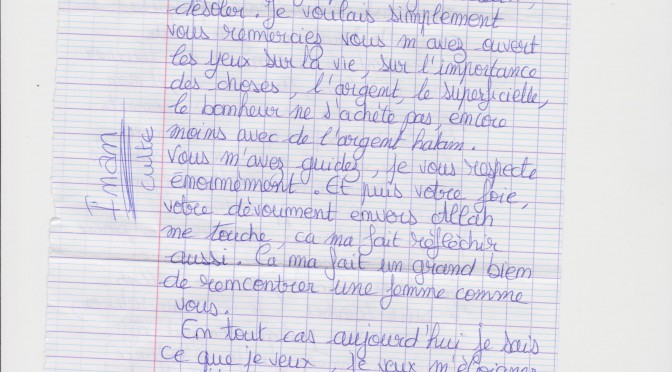 déseler. Je voulais simplement
vous remercies vous m'avez ouvert
les yeux sur la vie, sur l'importance
des choses, l'argent, le superficielle,
le bonheur ne s'achète pas, encore
moins avec de l'argent halam.
Vous m'avez guidez, je vous respecte
énormément. Et puis votre foie,
votre dévoument envers Allah
me touche, ca ma fait réflèchir
aussi. Ca ma fait un grand biem
de remcontrer une femme comme
vous.
En tout cas aujourd'hui je sais
ce que je veux, Je veux m'éloigner
Imam
culte